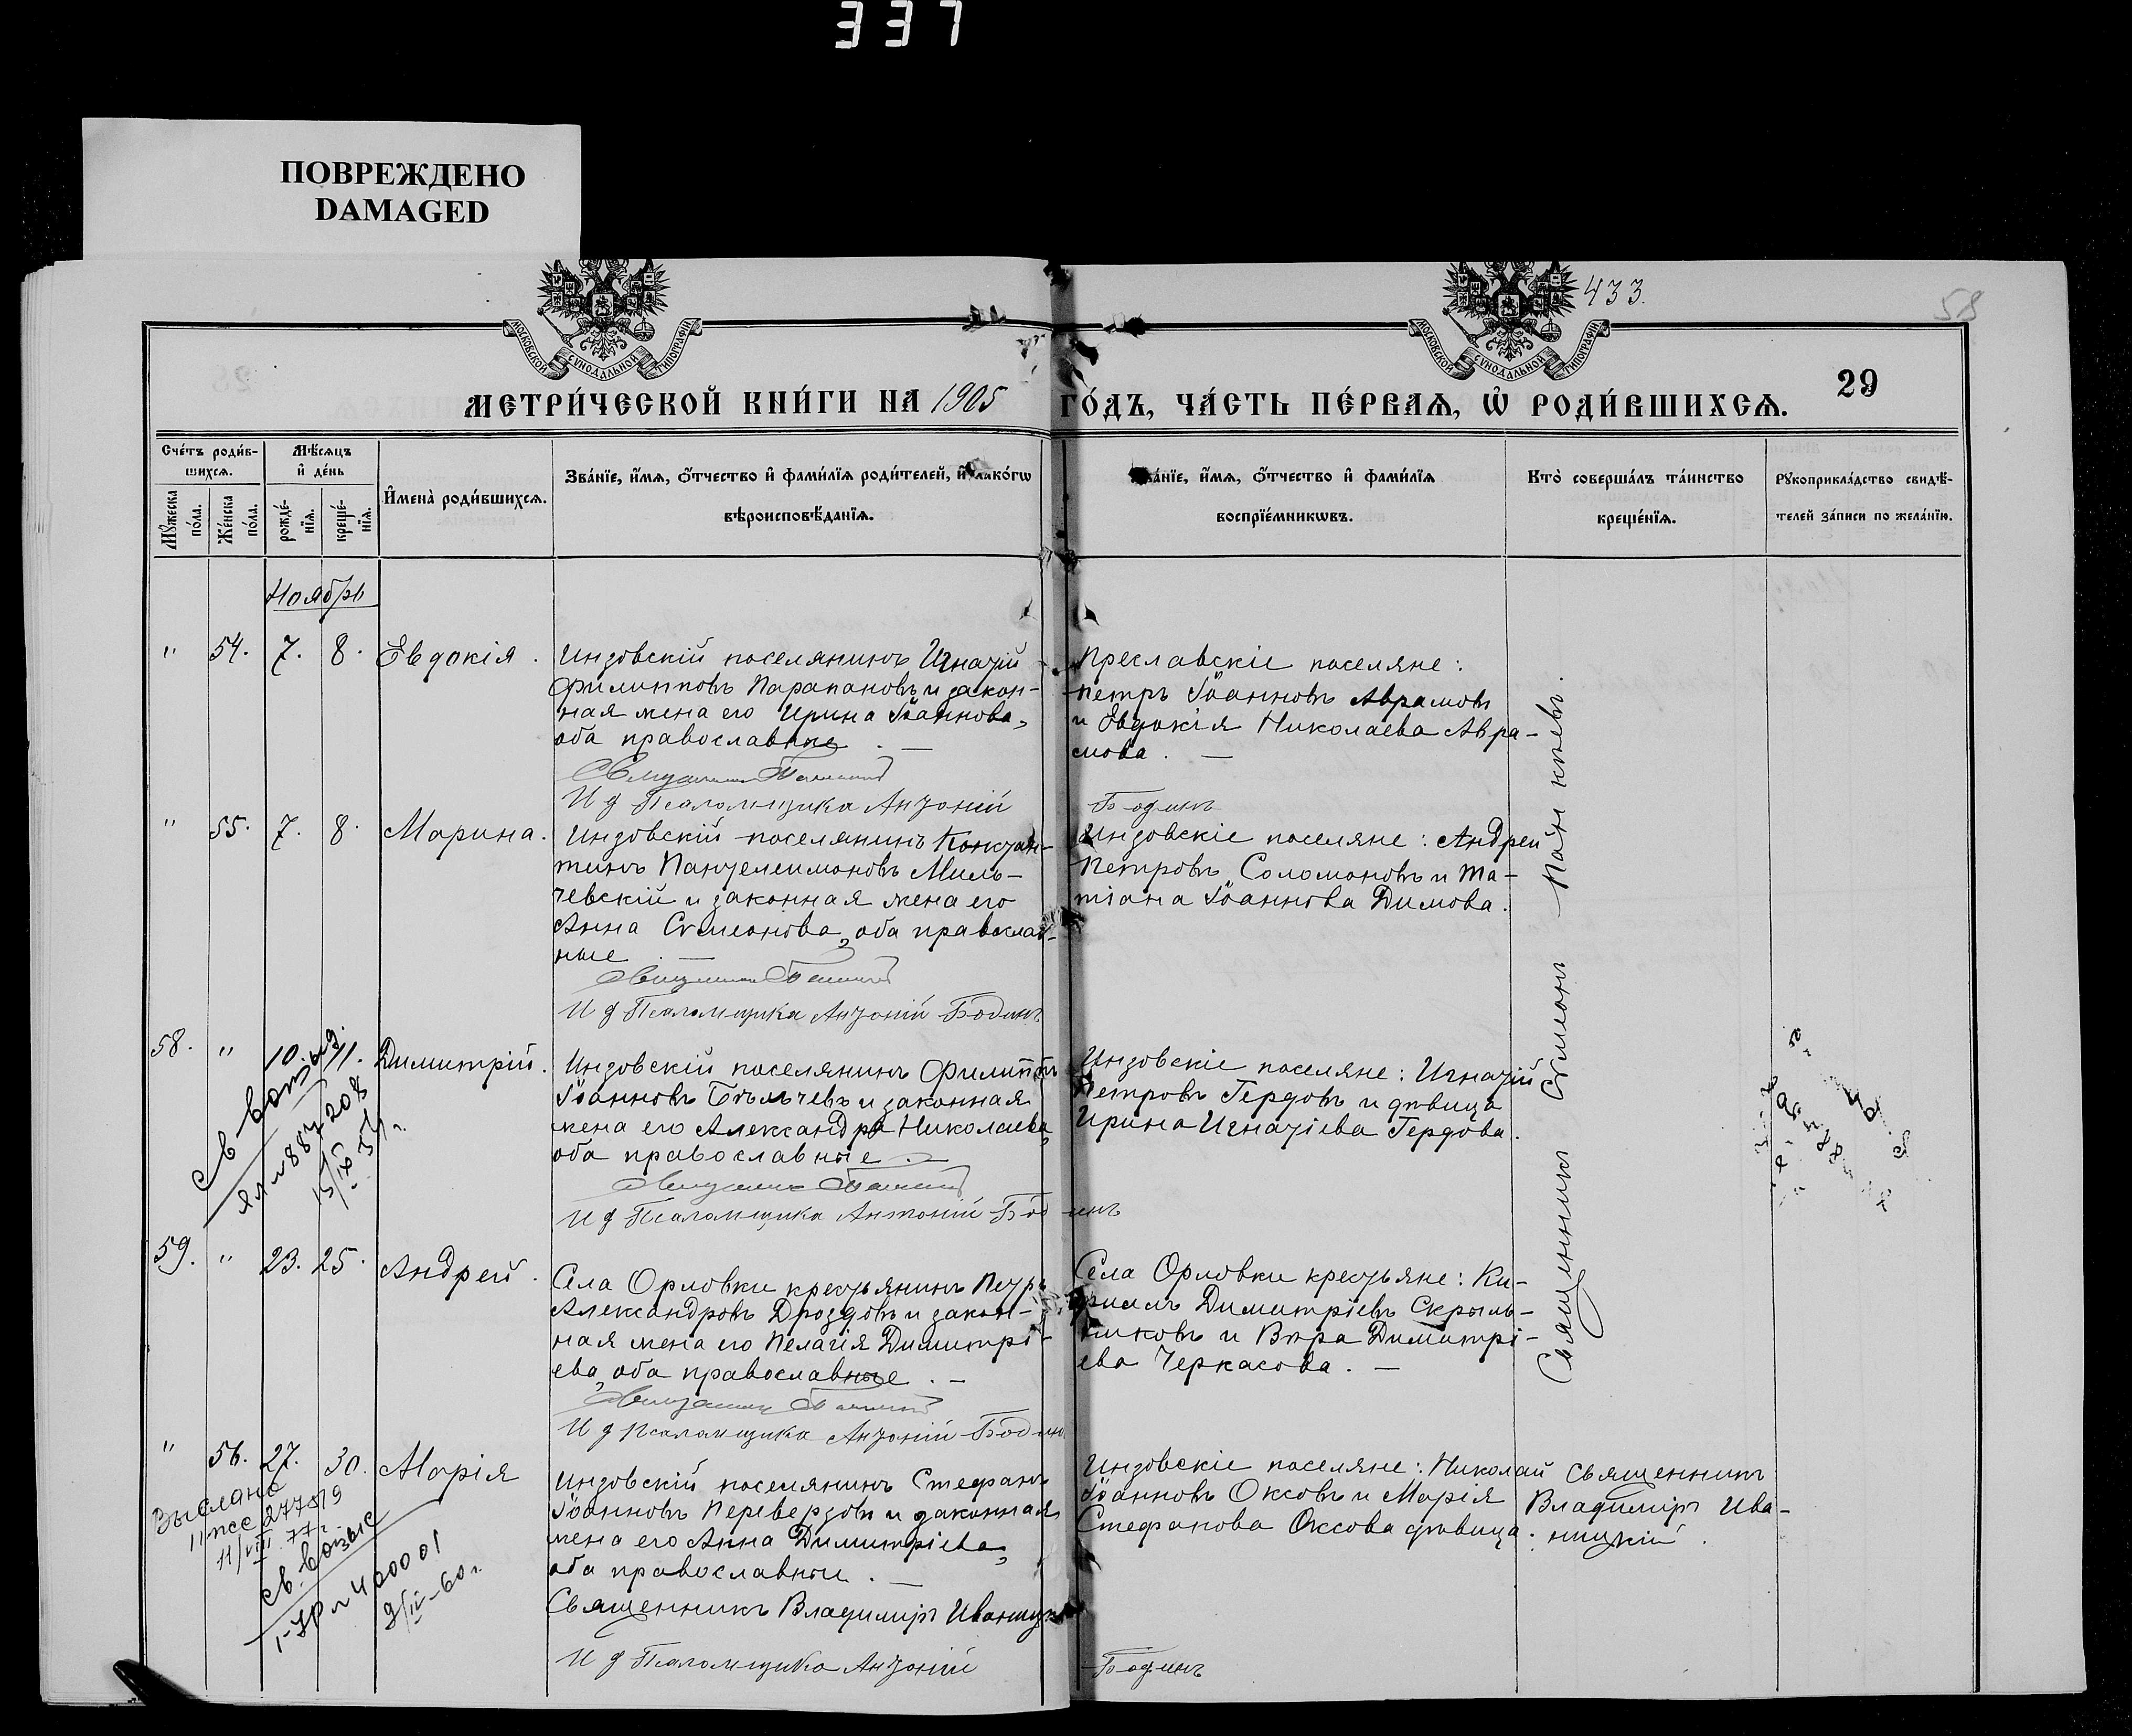 337
ПОВРЕЖДЕНО
DAMAGED
433.
58
МОСКОВСКОЙ СѴНОДАЛЬНОЙ ТИПОГРАФІИ
МОСКОВСКОЙ СѴНОДАЛЬНОЙ ТИПОГРАФІИ
29
МЕТРИ́ЧЕСКОЙ КНИ́ГИ НА 1905 ГО́ДЪ, ЧА́СТЬ ПЕ́РВАѦ, Ѡ҆ РОДИ́ВШИХСѦ.
Сче́тъ роди́в-
шихсѧ.
Мѣ́сѧцъ
и҆ де́нь
Мꙋ́жеска
по́ла.
Же́нска
по́ла.
рожде́-
нїѧ.
креще́-
нїѧ.
И҆мена̀ роди́вшихсѧ.
Зва́нїе, и҆́мѧ, ѻ҆́тчество и҆ фами́лїѧ роди́телей, и҆ како́гѡ
вѣроисповѣ́данїѧ.
Зва́нїе, и҆́мѧ, ѻ҆́тчество и҆ фами́лїѧ
воспрїе́мникѡвъ.
Кто̀ соверша́лъ та́инство
креще́нїѧ.
Рꙋкоприкла́дство свидѣ́-
телей за́писи по жела́нїю.
Ноябрь
" 54. 7. 8. Евдокія.
Индовскій поселянинъ Игнатій
Филипповъ Парапановъ и закон-
ная жена его Ирина Іоаннова,
оба православные. —
И д Псаломщика Антоній Бодинъ
Преславскіе поселяне:
Петръ Іоанновъ Аврамовъ
и Евдокія Николаева Авра-
мова. —
" 55. 7. 8. Марина.
Индовскій поселянинъ Констан-
тинъ Пантелеимоновъ Миль-
чевскій и законная жена его
Анна Сѵмеонова, оба православ-
ные. —
И д Псаломщика Антоній Бодинъ
Индовскіе поселяне: Андрей
Петровъ Соломоновъ и Та-
тіана Іоаннова Димова.
58. " 10. 11. Димитрій.
Индовскій поселянинъ Филиппъ
Іоанновъ Бѣльчевъ и законная
жена его Александра Николаева,
оба православные. —
И д Псаломщика Антоній Бодинъ
Индовскіе поселяне: Игнатій
Петровъ Гердовъ и дѣвица
Ирина Игнатіева Гердова.
св-во
887208
15/IX 54 г.
59. " 23. 25. Андрей.
Села Орловки крестьянинъ Петръ
Александровъ Дроздовъ и закон-
ная жена его Пелагія Димитрі-
ева, оба православные. —
И д Псаломщика Антоній Бодинъ
Села Орловки крестьяне: Ки-
риллъ Димитріевъ Скрыль-
никовъ и Вѣра Димитрі-
ева Черкасова. —
Священникъ Сѵмеонъ
" 56. 27. 30. Марія
Индовскій поселянинъ Стефанъ
Іоанновъ Перевердовъ и законная
жена его Анна Димитріева,
оба православные. —
Священникъ Владиміръ Иваницкій
И д Псаломщика Антоній Бодинъ
Индовскіе поселяне: Николай
Іоанновъ Оксовъ и Марія
Стефанова Оксова дѣвица.
Священникъ
Владиміръ Ива-
ницкій.
Выслано
277519
11/VIII 77 г.
св-во
400001
2/IV-60 г.